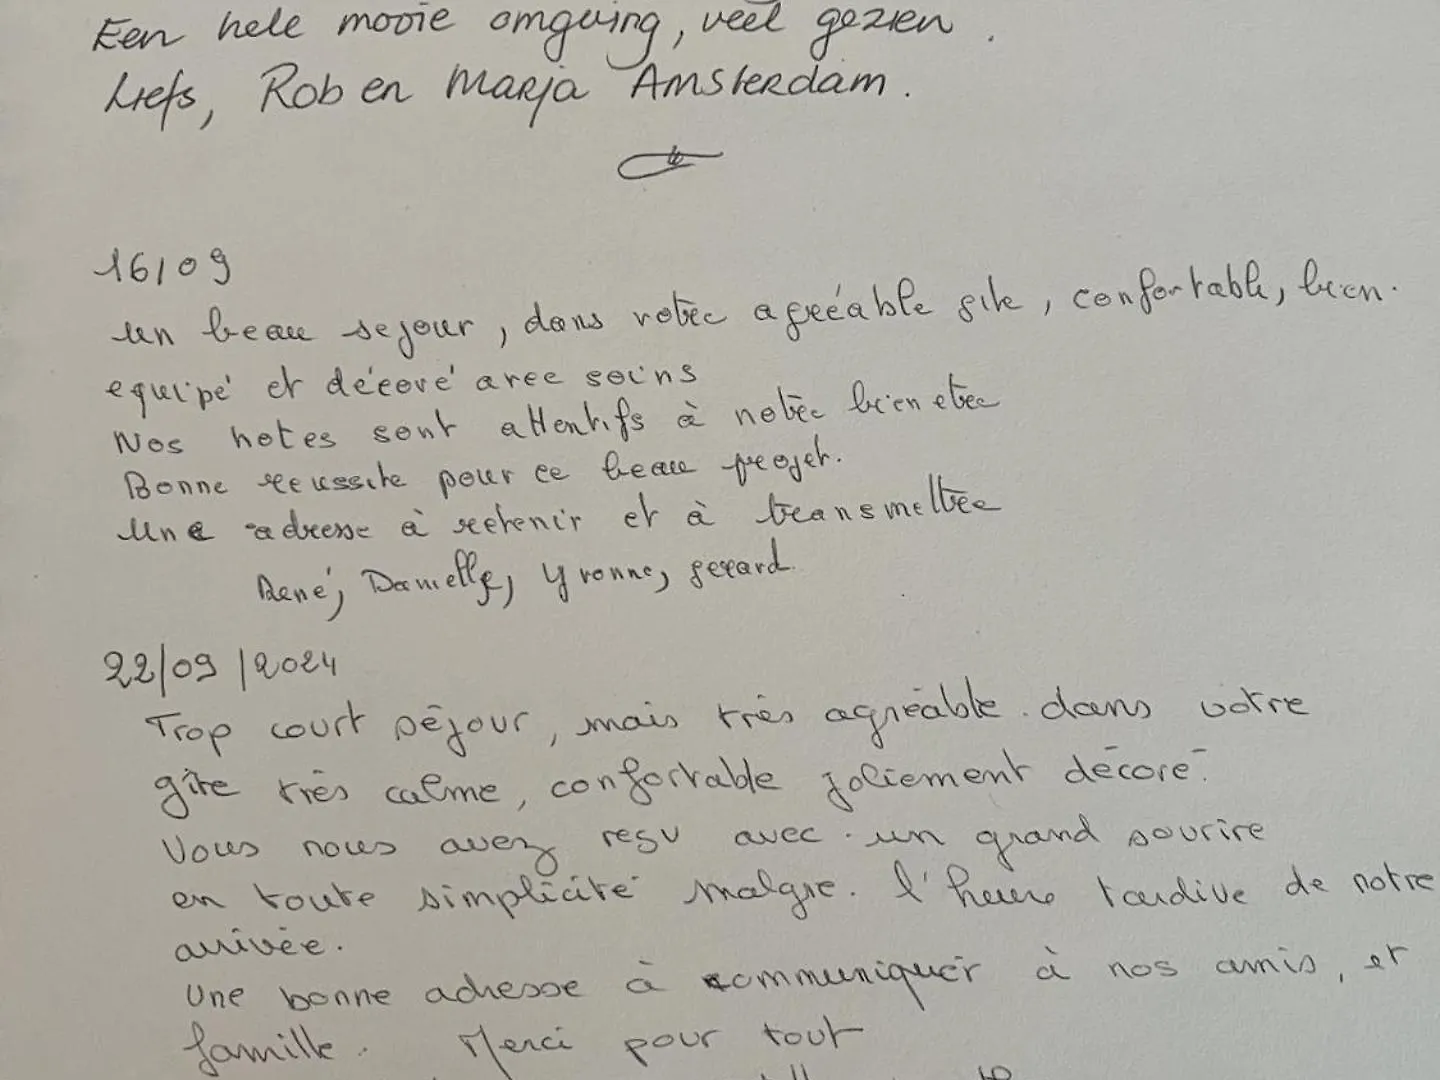 Een hele mooie omgeving, veel gezien.
Liefs, Rob en Marja Amsterdam.
16/09
un beau sejour, dans votre agréable gite, confortable, bien.
equipé et décoré avec soins
Nos hotes sont attentifs à notre bien etre
Bonne reussite pour ce beau projet.
Une adresse à retenir et à transmettre
René, Danielle, Yvonne, gerard.
22/09/2024
Trop court séjour, mais très agréable dans votre
gîte très calme, confortable joliement décoré.
Vous nous avez resu avec un grand sourire
en toute simplicité malgre. l'heure tardive de notre
arrivée.
Une bonne adresse à communiquer à nos amis, et
famille. Merci pour tout